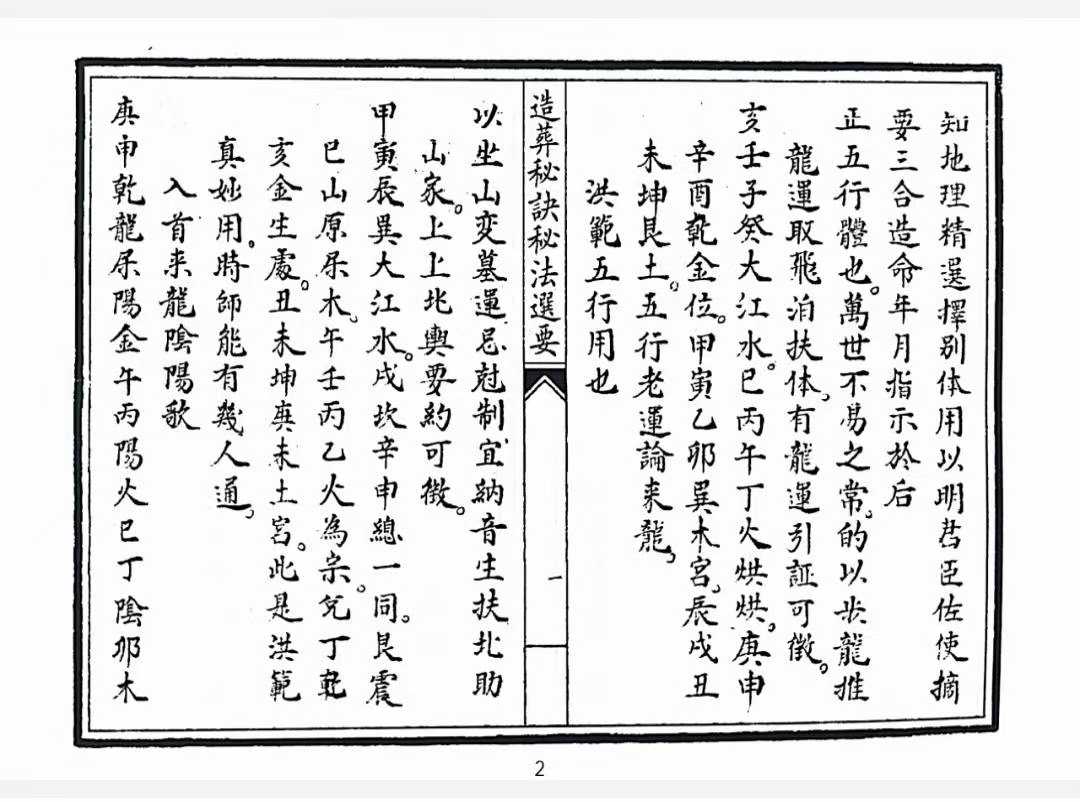 知地理精選擇别体用以明君臣佐使摘
要三合造命年月指示於后
正五行體也。萬世不易之常。的以坐龍推
龍運取飛泊扶体。有龍運引証可徵。
亥壬子癸大江水。巳丙午丁火烘烘。庚申
辛酉乾金位。甲寅乙卯巽木宮。辰戌丑
未坤艮土。五行老運論来龍。
洪範五行用也
造葬秘訣秘法選要
一
以坐山变墓運忌尅制宜納音生扶北助
山家。上上北輿要約可徵。
甲寅辰巽大江水。戌坎辛申總一同。艮震
巳山原屎木。午壬丙乙火為宗。兌丁乾
亥金生處。丑未坤庚未土宮。此是洪範
真妙用。時師能有幾人通。
入首来龍陰陽歌
庚申乾龍屎陽金午丙陽火巳丁陰卯木
2